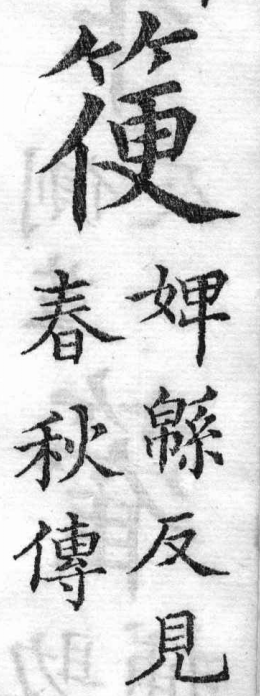 箯
婢緜反見
春秋傳